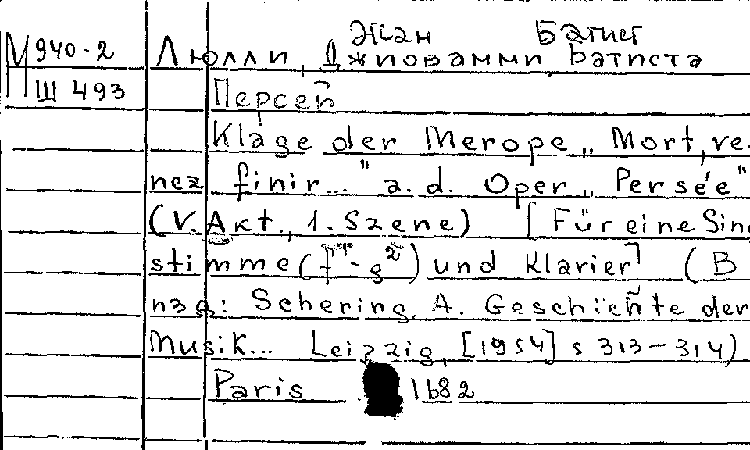 Жан Батист
М 940-2 Люлли, Джиованни Батиста
Ш 493 Персей
Klage der Merope „Mort, ve-
nez finir..." a.d. Oper „Persée"
(V. Akt., 1. Szene) [Für eine Sing
stimme (f¹-g²) und Klavier] (В
изд: Schering, A. Geschichte der
Musik... Leipzig, [1954] s 313-314)
Paris 1682